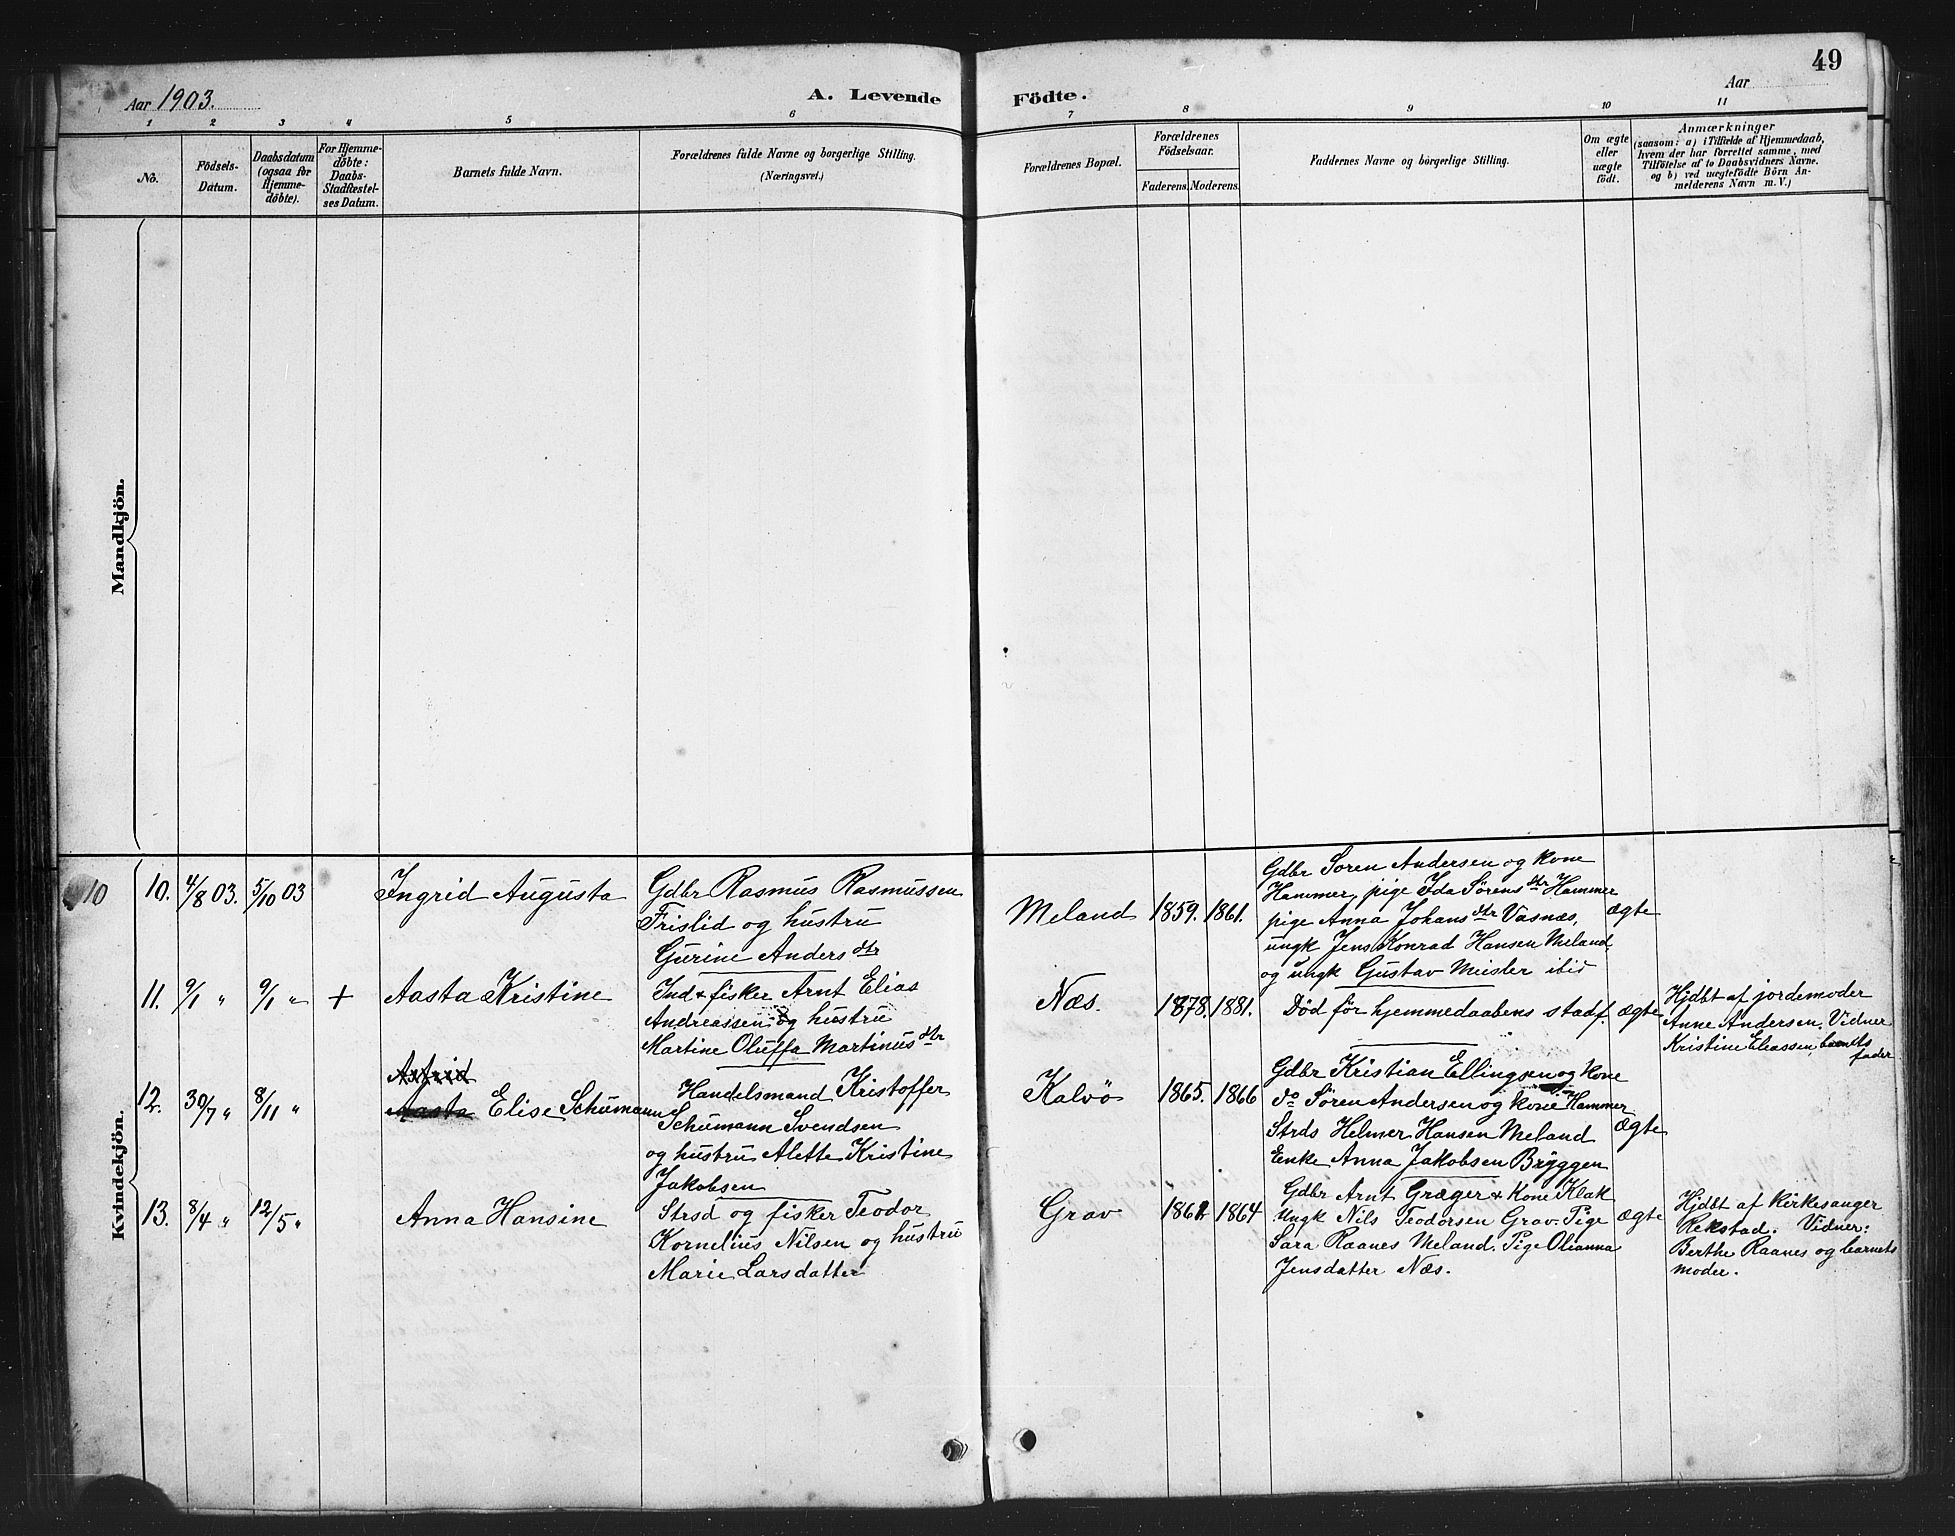 49
Aar 1903.
A. Levende Födte.
Aar
1 2 3 4 5 6 7 8 9 10 11
No.
Födsels-
Datum.
Daabsdatum
(ogsaa for
Hjemme-
döbte).
For Hjemme-
döbte:
Daabs-
Stadfæstel-
ses Datum.
Barnets fulde Navn.
Forældrenes fulde Navne og borgerlige Stilling.
(Næringsvei.)
Forældrenes Bopæl.
Forældrenes
Födselsaar.
Faderens. Moderens.
Faddernes Navne og borgerlige Stilling.
Om ægte
eller
uægte
födt.
Anmærkninger
(saasom: a) i Tilfælde af Hjemmedaab,
hvem der har forrettet samme, med
Tilföielse af to Daabsvidners Navne.
og b) ved uægtefödte Börn An-
melderens Navn m.V.)
Mandkjön.
Kvindekjön.
10 10. 4/8 03. 5/10 03
Ingrid Augusta
Gdbr Rasmus Rasmussen
Frislid og hustru
Gurine Andersdtr
Meland 1859. 1861.
Gdbr Soren Andersen og kone
Hammer, pige Ida Sörensdtr Hammer
pige Anna Johansdtr Vasnæs,
ungk Jens Konrad Hansen Meland
og ungk Gustav Meisler ibid
ægte
11. 9/1 " 9/1 " +
Aasta Kristine
Ind & fisker Arnt Elias
Andreassen og hustru
Martine Oluffa Martinusdtr
Næs. 1878. 1881.
Död för hjemmedaabens stadf.
ægte
Hjdbt af jordemoder
Anne Andersen. Vidner
Kristine Eliassen, barnets
fader
12. 30/7 " 8/11 "
Astrid
Aasta Elise Schumann
Handelsmand Kristoffer
Schumann Svendsen
og hustru Alette Kristine
Jakobsen
Kalvö 1865. 1866
Gdbr Kristian Ellingsen og kone
do Sören Andersen og kone Hammer
Strds Helmer Hansen Meland
Enke Anna Jakobsen Bryggen
Ægte
13. 8/4 " 12/5 "
Anna Hansine
Strsd og fisker Teodor
Kornelius Nilsen og hustru
Marie Larsdatter
Grav 1862 1864
Gdbr Arnt Græger & Kone Klak
Ungk Nils Teodorsen Grav. Pige
Sara Raanes Meland. Pige Olianna
Jensdatter Næs.
Ægte
Hjdbt af kirkesanger
Rekstad. Vidner:
Berthe Raanes og barnets
moder.